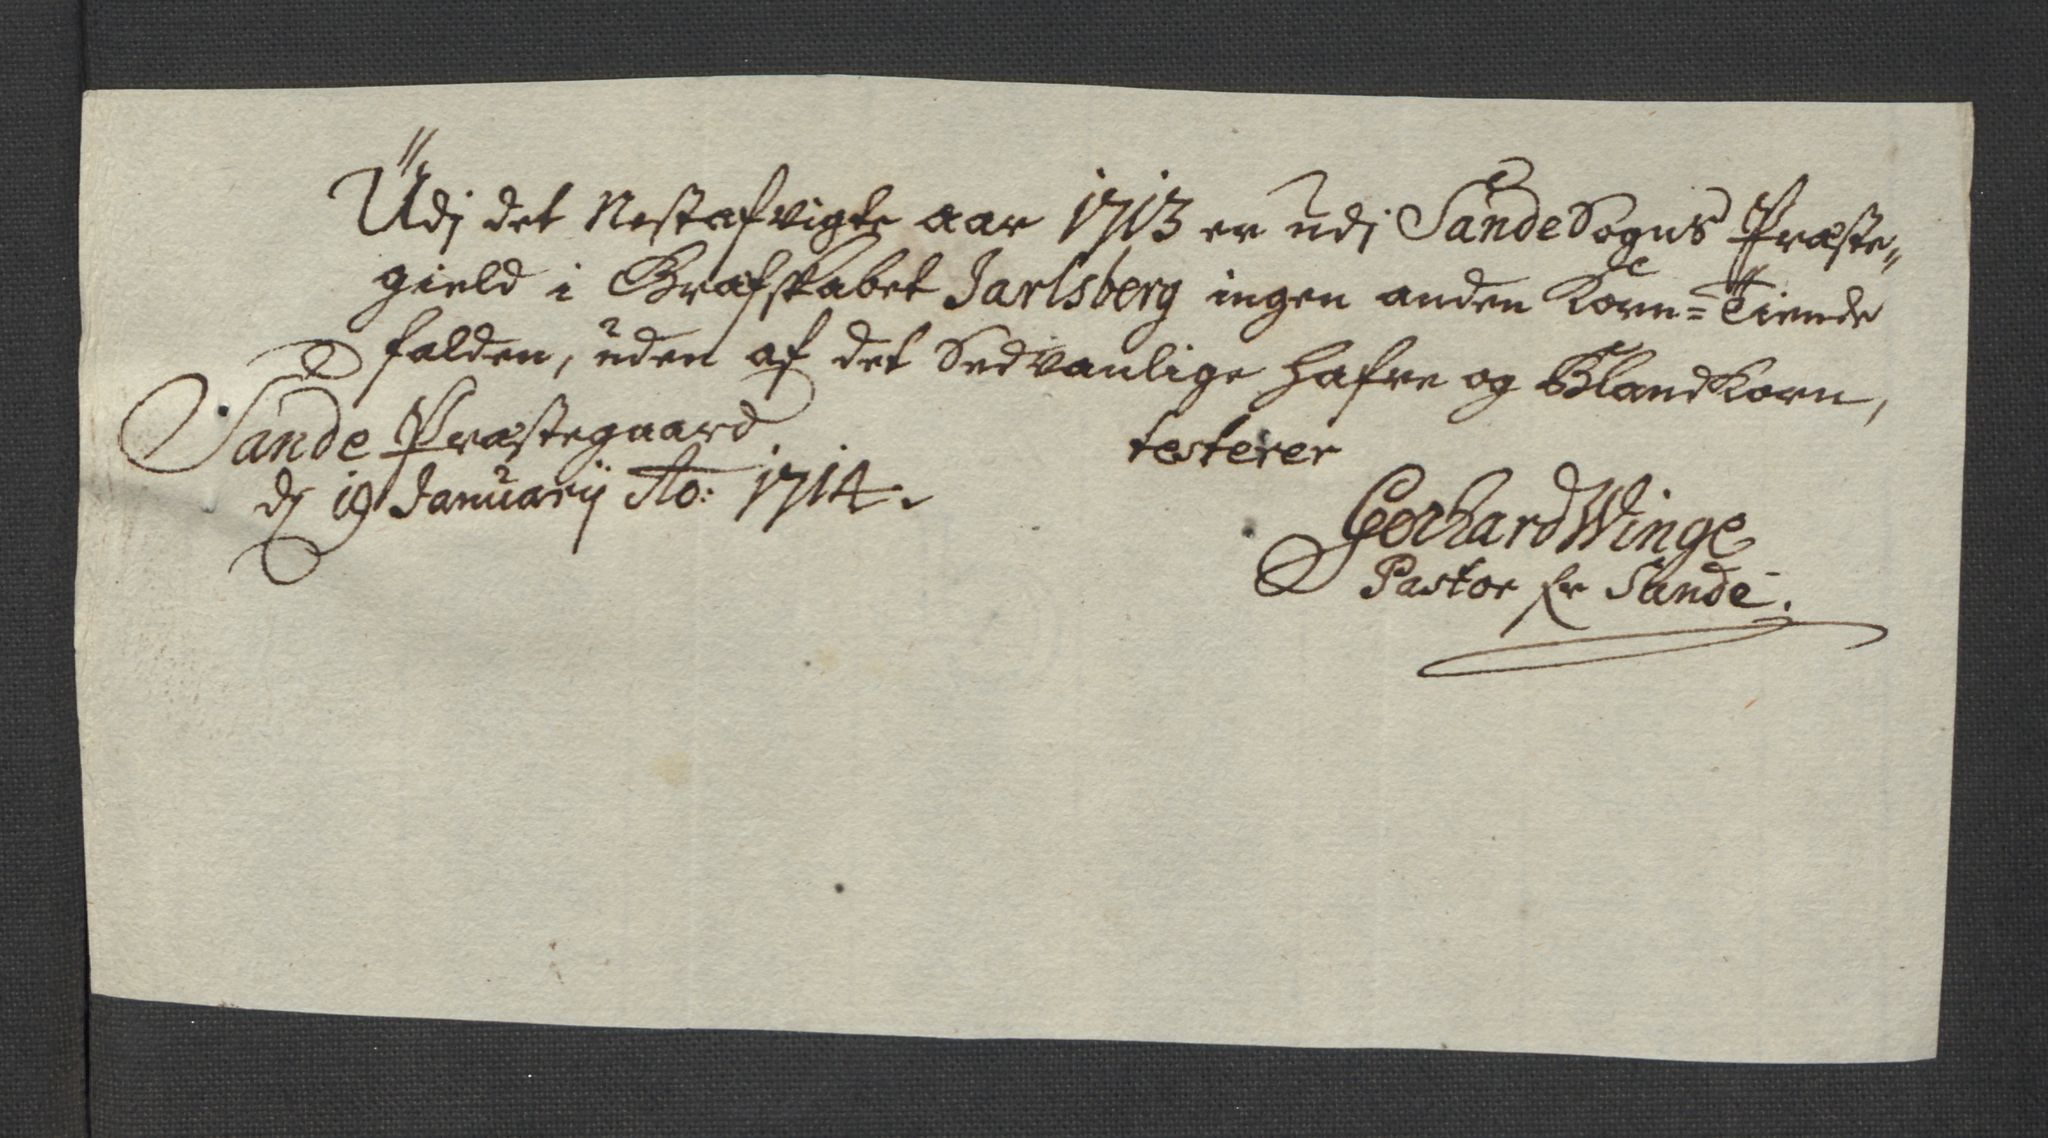 Udj det Nestafvigte aar 1713 er udj Sande Sogns Præste-
gield i Grafskabet Jarlsberg ingen anden Korn-Tiende
falden, uden af det Sedvanlige Hafre og Blandkorn,
Sande Præstegaard testerer
dj 19 Januarij Ao: 1714.
Gerhard Winge
Pastor fr Sande.